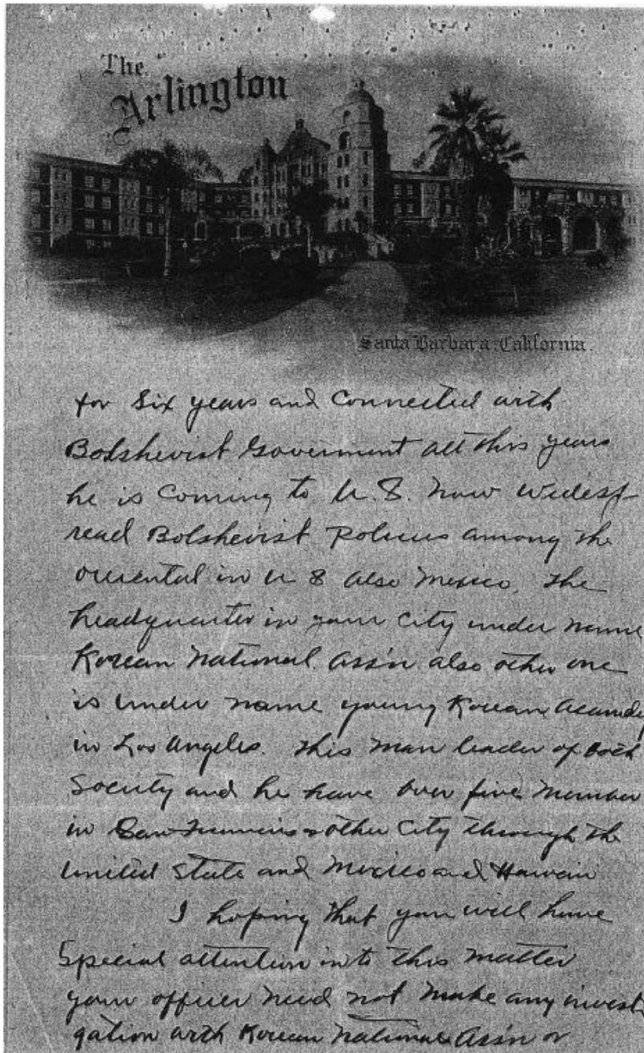 The
Arlington
Santa Barbara, California.
for Six years and Connected with
Bolshevist Goverment all this years
he is Coming to U.S. now widesp-
read Bolshevist Policies among the
oriental in U S also Mexico. The
headquarter in your City under name
Korean National Ass'n also other one
is under name young Korean Acamdy
in Los Angeles. This man leader of Both
Society and he have over five member
in San Francisco & other City through the
United State and Mexico and Hawaii
I hoping that you will have
Special attention in to this matter
your officer need not make any invest-
gation with Korean National Ass'n or